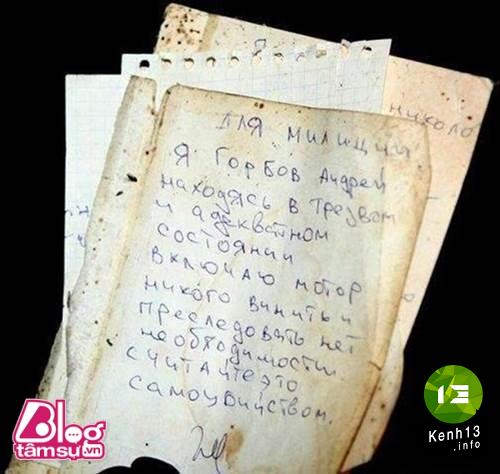 николо
для милиции
Я Горбов Андрей
находясь в трезвом
и адекватном
состоянии
включаю мотор
никого винить и
преследовать нет
необходимости
считайте это
самоубийством.
Blog
tâmsự.vn
Kenh13
.info